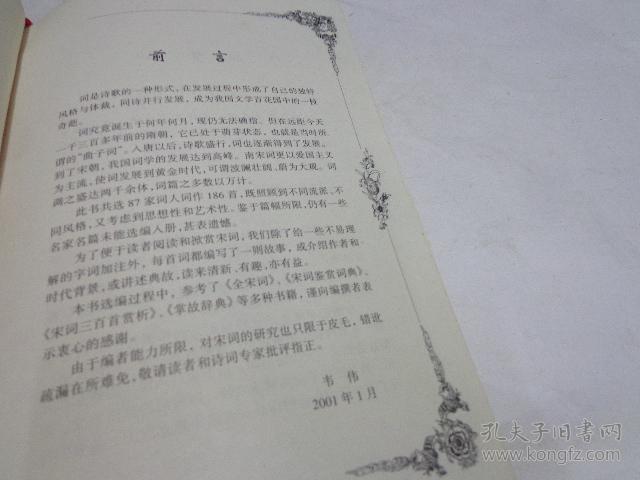 前言
词是诗歌的一种形式，在发展过程中形成了自己的独特
风格与体裁，同诗并行发展，成为我国文学百花园中的一枝
奇葩。
词究竟诞生于何年何月，现仍无法确信。但在远距今天
一千三百多年前的隋朝，它已处于萌芽状态，也就是当时所
谓的“曲子词”。入唐以后，诗歌盛行，词也逐渐得到了发展。
到了宋朝，我国词学的发展达到高峰。南宋词更以爱国主义
为主流，使词发展到黄金时代，可谓波澜壮阔、蔚为大观。词
调之盛达两千余体，词篇之多数以万计。
此书共选 87 家词人词作 186 首，既照顾到不同流派、不
同风格，又考虑到思想性和艺术性。鉴于篇幅所限，仍有一些
名家名篇未能选编入册，甚表遗憾。
为了便于读者阅读和掀赏宋词，我们除了给一些不易理
解的字词加注外，每首词都编写了一则故事，或介绍作者和
时代背景，或讲述典故，读来清新、有趣，亦有益。
本书选编过程中，参考了《全宋词》、《宋词鉴赏词典》、
《宋词三百首赏析》、《掌故辞典》等多种书籍，谨向编撰者表
示衷心的感谢。
由于编者能力所限，对宋词的研究也只限于皮毛，错讹
疏漏在所难免，敬请读者和诗词专家批评指正。
韦伟
2001 年 1 月
孔夫子旧书网
www.kongfz.com